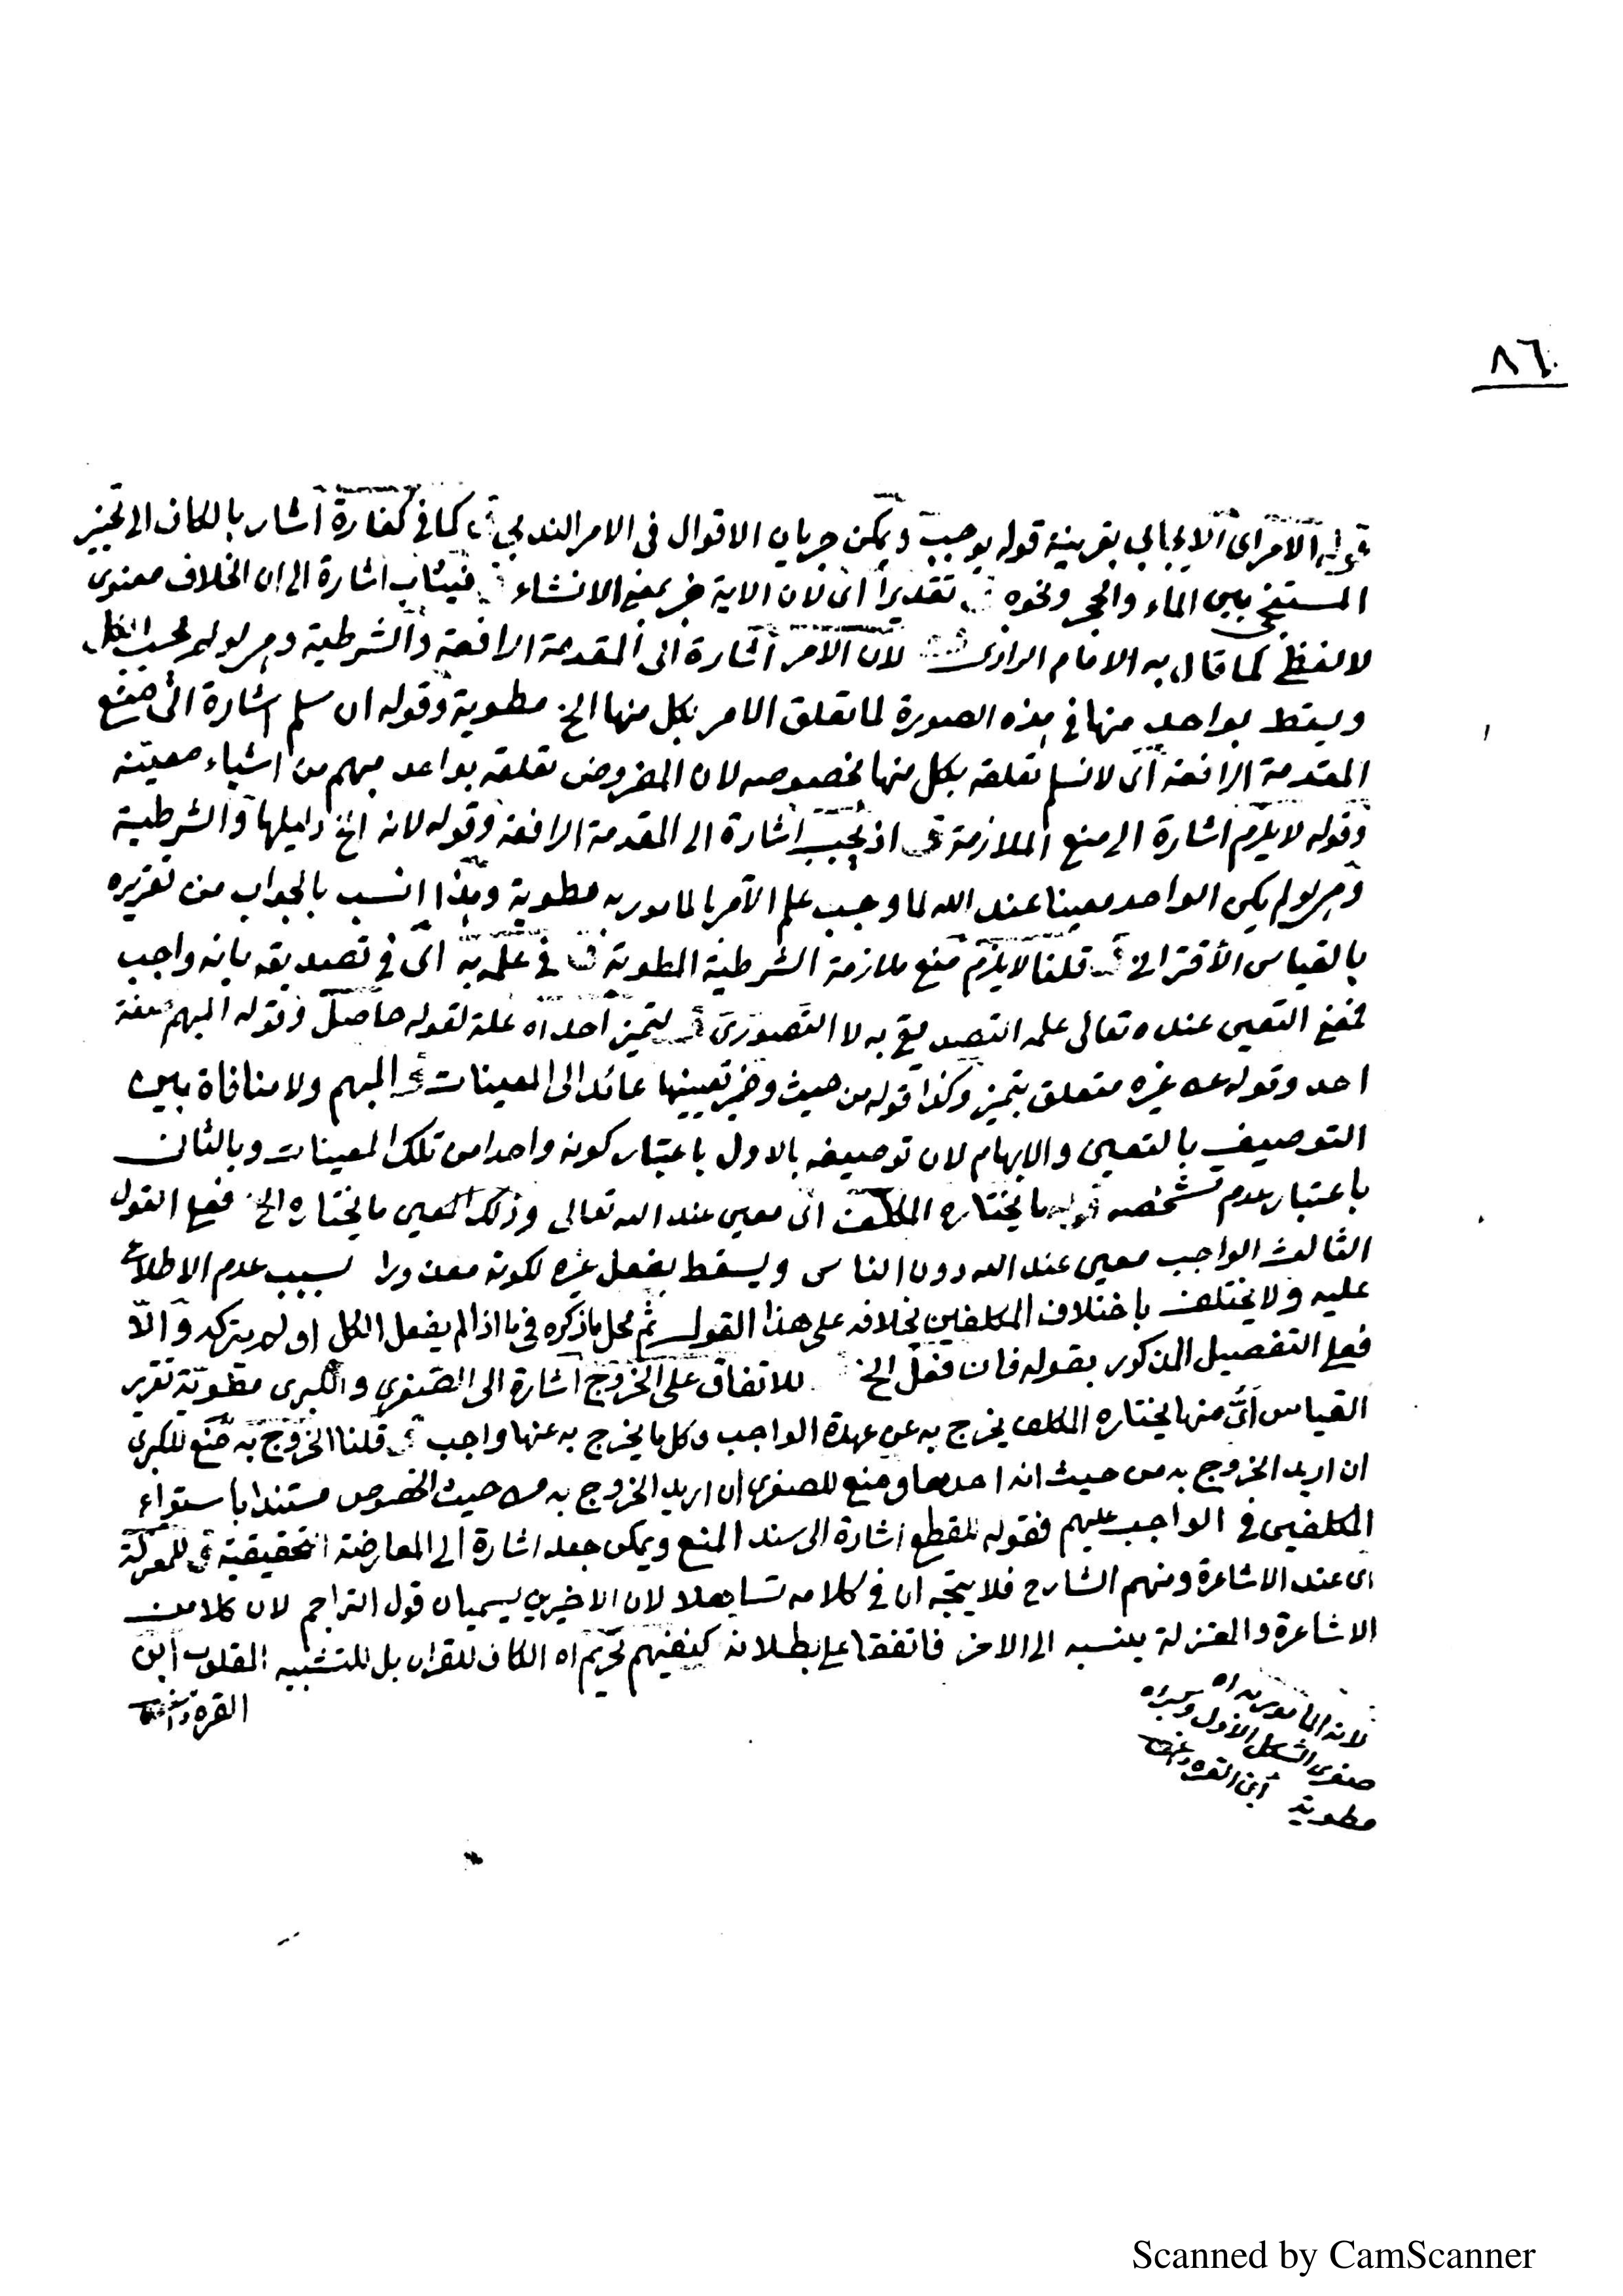 ٨٦
قوله الامر اى الايجابي بقرينة قوله يوجب ويمكن جريان الاقوال فى الامر الندبي ق كما فى كفارة اشار بالكاف الى تخيير
المستنجى بين الماء والحجر ونحوه ق تقديرا اى لان الاية خبر بمعنى الانشاء ق فيثاب اشارة الى ان الخلاف معنوى
لا لفظى كما قال به الامام الرازى لان الامر اشارة الى المقدمة الرافعة والشرطية وهى لو لم يجب الكل
ويسقط بواحد منها فى هذه الصورة لما تعلق الامر بكل منها الخ مطوية وقوله ان سلم اشارة الى منع
المقدمة الرافعة اى لا نسلم تعلقه بكل منها بخصوصه لان المفروض تعلقه بواحد مبهم من اشياء معينة
وقوله لا يلزم اشارة الى منع الملازمة ق اذ يجب اشارة الى المقدمة الرافعة وقوله لانه الخ دليلها والشرطية
وهى لو لم يكن الواحد معينا عند الله لما وجب علم الآمر بالمامور به مطوية وهذا انسب بالجواب من تقريره
بالقياس الاقترانى ق قلنا لا يلزم منع ملازمة الشرطية المطوية ق فى علمه به اى فى تصديقه بانه واجب
فمعنى التعين عنده تعالى علمه التصديقى به لا التصورى ق لتميز احد اه علة لقوله حاصل وقوله المبهم صفة
احد وقوله عن غيره متعلق بتميز وكذا قوله من حيث وضمير تعيينها عائد الى المعينات ق المبهم ولا منافاة بين
التوصيف بالتعين والابهام لان توصيفه بالاول باعتبار كونه واحدا من تلك المعينات وبالثانى
باعتبار عدم تشخصه قوله ما يختاره المكلف اى معين عند الله تعالى وذلك المعين ما يختاره الخ فعلى القول
الثالث الواجب معين عند الله دون الناس ويسقط بفعل غيره لكونه معذورا بسبب عدم الاطلاع
عليه ولا يختلف باختلاف المكلفين بخلافه على هذا القول ثم محل ما ذكره فيما اذا لم يفعل الكل او لم يتركه والا
فعلى التفصيل المذكور بقوله فان فعل الخ للاتفاق على الخروج اشارة الى الصغرى والكبرى مطوية تقرير
القياس اى منها يختاره المكلف يخرج به عن عهدة الواجب وكل ما يخرج به عنها واجب ق قلنا الخروج به منع للكبرى
ان اريد الخروج به من حيث انه احدها ومنع للصغرى ان اريد الخروج به من حيث الخصوص مستندا باستواء
المكلفين فى الواجب عليهم فقوله للقطع اشارة الى سند المنع ويمكن جعله اشارة الى المعارضة التحقيقية ق للمعتزلة
اى عند الاشاعرة ومنهم الشارح فلا يتجه ان فى كلامه تساهلا لان الاخيرين يسميان قول التراجم لان كلا من
الاشاعرة والمعتزلة ينسبه الى الاخر فاتفقا على بطلانه كنفيهم تحريم اه الكاف للقران بل للتشبيه المقلوب ابن
القره داغى
لانه المامور به اه
صغرى الشكل الاول وكبراه
مطوية ابن القره داغى
Scanned by CamScanner